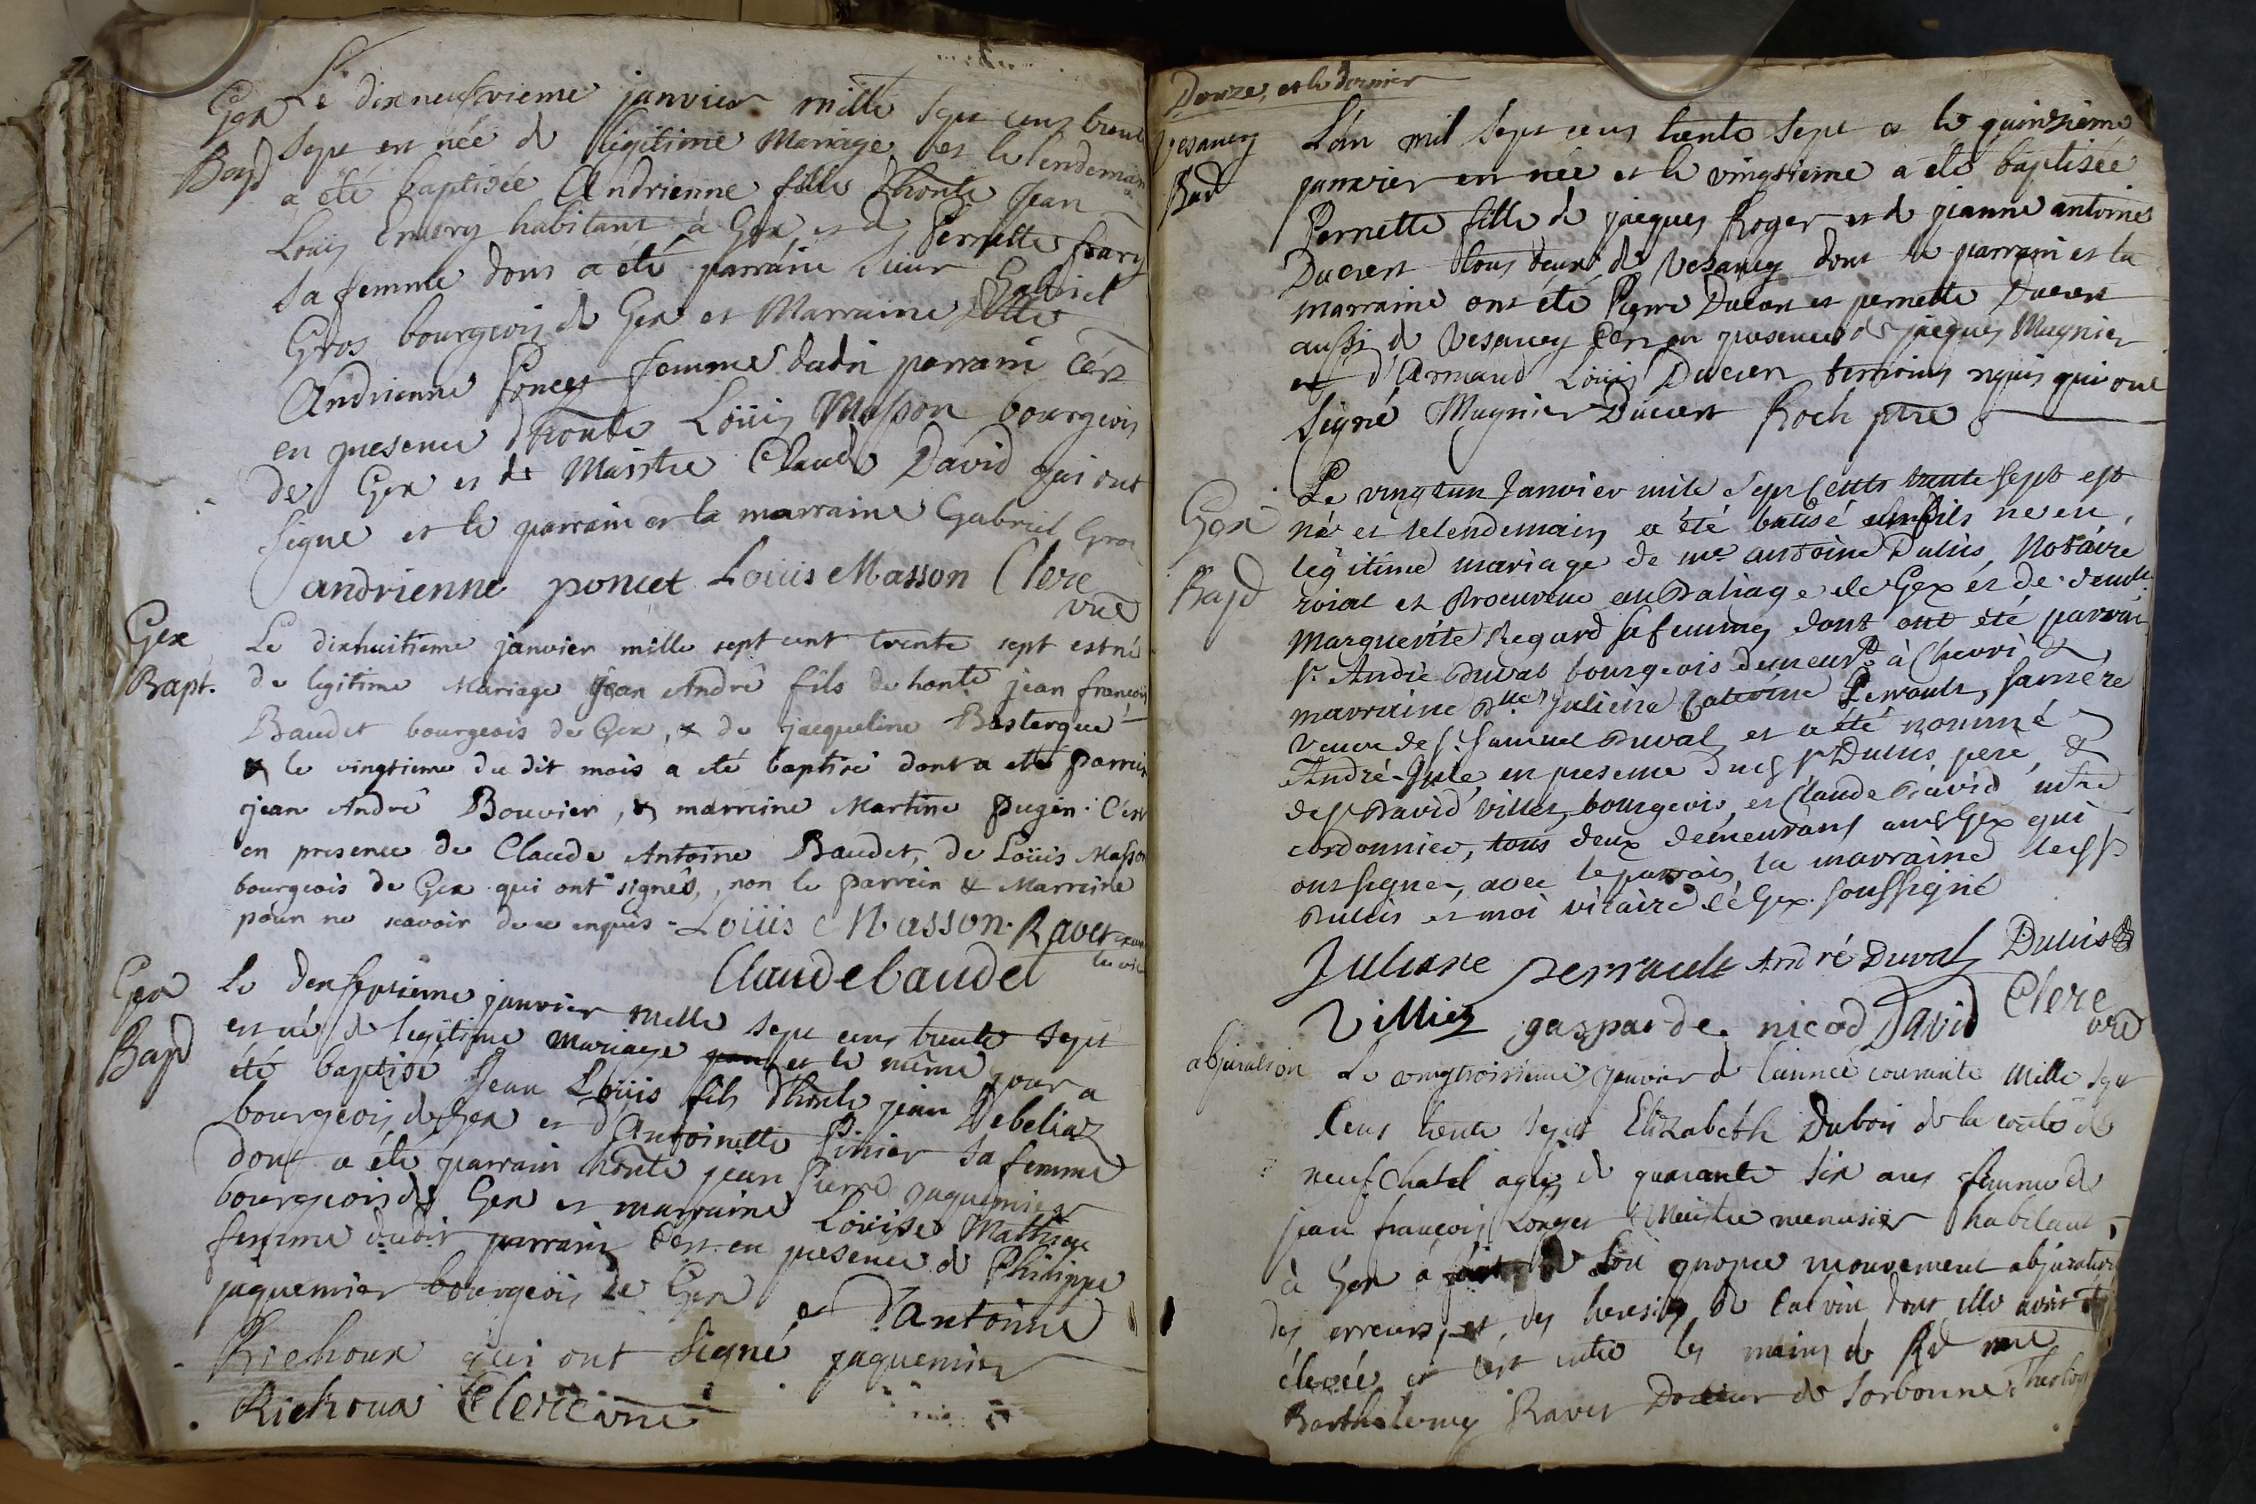 Gex
Bapt
Le dixneufvieme janvier mille sept cens trente
sept est née de legitime Mariage et le lendemain
a été baptisée Andrienne fille d'honte Jean
Loüis Emery habitant à Gex et de Pernette
sa femme dont a été parrain Sieur Gabriel
Gros bourgeois de Gex et Marraine
Andrienne Poncet femme dudit parrain C'est
en presence d'honte Loüis Masson bourgeois
de Gex et de Maistre Claude David qui ont
signé et le parrain et la marraine Gabriel Gros
andrienne poncet Loüis Masson Clerc
vre
Gex
Bapt.
Le dixhuitieme janvier mille sept cent trente sept est né
de legitime Mariage Jean André fils de honte jean francois
Baudet bourgeois de Gex, & de jacqueline Basterque
& le vingtieme du dit mois a eté baptisé dont a eté parrein
jean André Bouvier, & marreine Martine Pugin. C'est
en presence de Claude Antoine Baudet, de Loüis Masson
bourgeois de Gex qui ont signés, non le parrein & Marreine
pour ne scavoir de ce enquis - Loüis Masson. Ravet
Claude baudet
Gex
Bapt
Le dixseptieme janvier mille sept cens trente sept
est né de legitime mariage et le même jour a
été baptisé Jean Loüis fils d'honte jean Debeliaz
bourgeois de Gex et d'Antoinette Pinier sa femme
dont a été parrain honte jean Pierre jaquemier
bourgeois de Gex et marraine Loüise Mathieu
femme dudit parrain C'est en presence de Philippe
jaquemier bourgeois de Gex et d'Antoine
Richoux qui ont signé jaquemier
Richoux Clerc vre
Douze, et le dernier
Vesancy
Bapt
L'an mil sept cens trente sept et le quinzieme
janvier est née et le vingtieme a été baptisée
Pernette fille de jacques Roger et de jeanne antoine
Ducret tous deux de Vesancy dont le parrain et la
marraine ont été Pierre Ducret et pernette Ducret
aussi de Vesancy C'est en presence de jacques Mugnier
et d'Armand Loüis Ducret temoins requis qui ont
signé Mugnier Ducret Roch ptre
Gex
Bapt
Le vingtun Janvier mile Sept Cents trente sept est
né et le lendemain a été batisé un fils né en
legitime mariage de me antoine Dulus, Notaire
roial et Procureur au Baliage de Gex et de demlle
Marguerite Regard sa femme, dont ont été parrain
sr. André Duval bourgeois demeurt. à Chevri &
marraine Dlle Juliene Caterine Perrault, sa mére
veuve de sr. Samuel Duval, et a été nommé
André-Jule, en presence dud sr Dulus pere, &
de sr David Villiez bourgeois, et Claude David mtre
cordonnier, tous deux demeurans aud Gex qui
ont signé, avec le parrain, la marraine led sr.
Dulus et moi vicaire de Gex soussigné
Juliane perrault André Duval Dulus
Villiez gasparde nicod David Clerc
vre
abjuration
Le vingtroisieme janvier de l'année courante mille sept
cens trente sept Elizabeth Dubois de la comté de
neufchatel agée de quarante six ans femme de
jean françois Longet Maistre menusier habitant
à Gex a fait de son propre mouvement abjuration
des erreurs, et des heresies de Calvin dont elle avoit été
élevée et c'est entre les mains de Rd mre
Barthelemy Ravet Docteur de Sorbonne